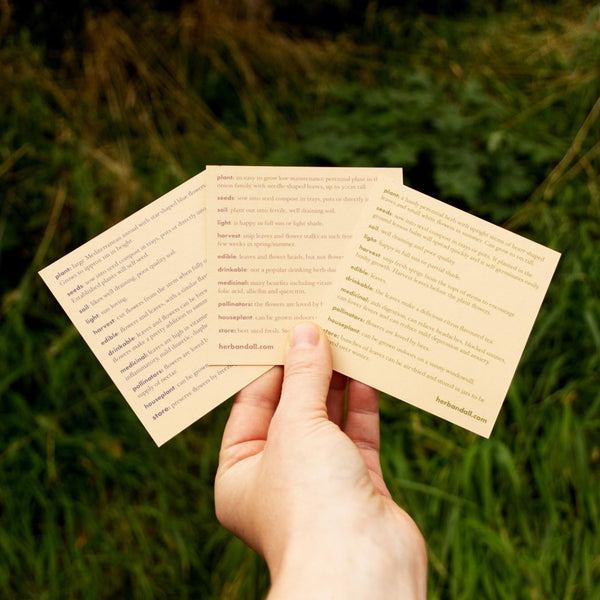 plant: large Mediterranean annual with star-shaped blue flowers.
Grows to approx 1m in height.
seeds: sow into seed compost in trays, pots or directly into
Established plants will self seed.
soil: likes well draining, poor quality soil.
light: sun loving.
harvest: cut flowers from the stem when fully
edible: flowers and leaves, with a similar
drinkable: leaves and flowers can be
flowers make a pretty addition to
medicinal: leaves are high in vitamin
inflammatory, mild diuretic,
pollinators: flowers are loved
supply of nectar.
houseplant: can be grown
store: preserve flowers by
plant: an easy to grow low-maintenance perennial plant in th
onion family, with needle-shaped leaves, up to 30cm tall.
seeds: sow into seed compost in trays, pots or directly in
soil: plant out into fertile, well draining soil.
light: is happy in full sun or light shade.
harvest: snip leaves and flower stalks as each
few weeks in spring/summer.
edible: leaves and flower heads, but not
drinkable: not a popular drinking herb
medicinal: many benefits including vitamin
folic acid, allicillin and quercetin.
pollinators: the flowers are loved by
houseplant: can be grown indoors
store: best used fresh.
herbandall.com
plant: a hardy perennial herb with upright stems of heart-shaped
leaves and small white flowers in summer. Can grow to 1m tall.
seeds: sow into seed compost in trays or pots. If planted in the
ground lemon balm will spread quickly and it will germinate easily
soil: well draining and poor quality.
light: happy in full sun or partial shade.
harvest: snip fresh sprigs from the tops of stems to encourage
bushy growth. Harvest leaves before the plant flowers.
edible: leaves.
drinkable: the leaves make a delicious citrus flavoured tea.
medicinal: aids digestion, can relieve headaches, blocked sinuses,
can lower fevers and can reduce mild depression and anxiety.
pollinators: flowers are loved by bees.
houseplant: can be grown on a sunny windowsill.
store: bunches of leaves can be air-dried and stored in jars to be
over winter.
herbandall.com